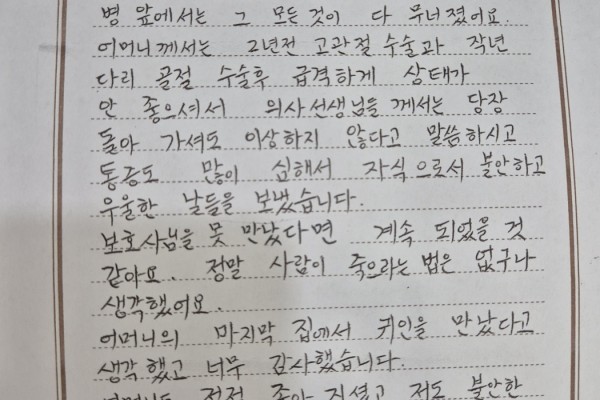 병 앞에서는 그 모든것이 다 무너졌어요.
어머니께서는 2년전 고관절 수술과 작년
다리 골절 수술후 급격하게 상태가
안 좋으셔서 의사선생님들 께서는 당장
돌아 가셔도 이상하지 않다고 말씀하시고
통증도 많이 심해서 자식으로서 불안하고
우울한 날들을 보냈습니다.
보호사님을 못 만났다면 계속 되었을 것
같아요. 정말 사람이 죽으라는 법은 없구나
생각했어요.
어머니의 마지막 집에서 귀인을 만났다고
생각했고 너무 감사했습니다.
점점 좋아 지셨고 저도 불안한